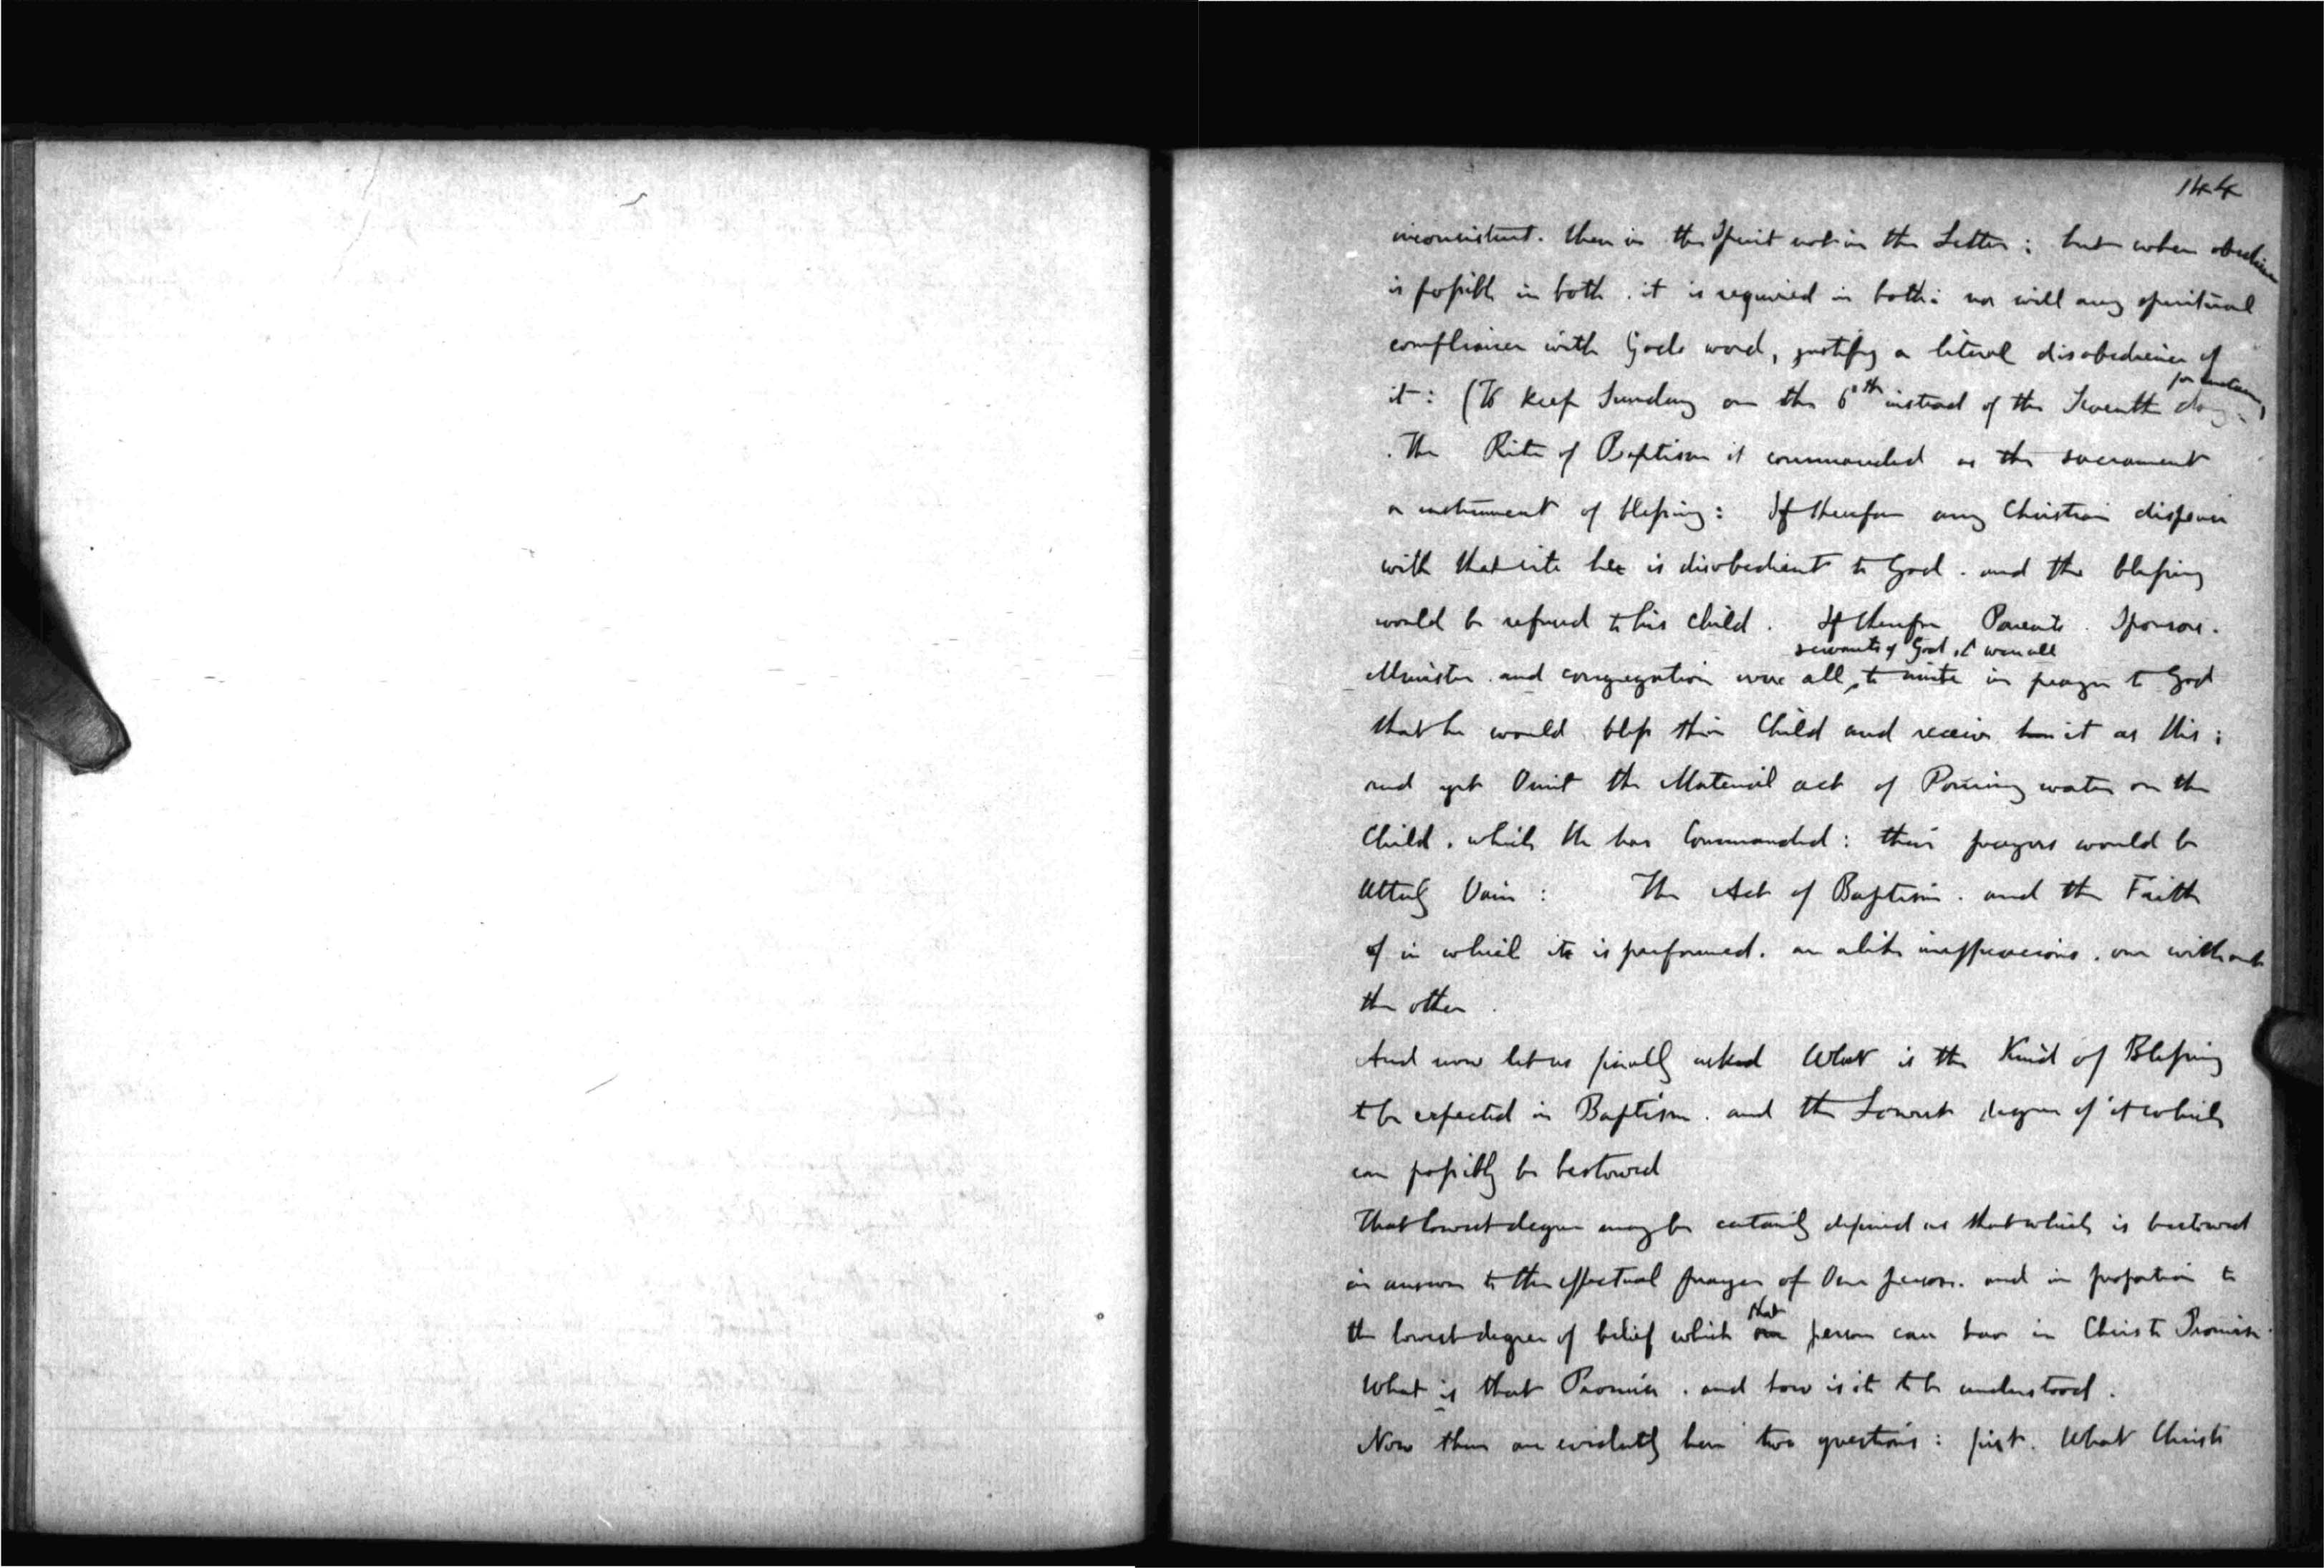 144
inconsistent. then in the Spirit not in the Letter : but when obedience
is possible in both . it is required in both : nor will any spiritual
compliance with Gods word, justify a literal disobedience of
it : (To keep Sunday on the 6th instead of the Seventh day
for instance)
. The Rite of Baptism is commanded as the sacrament
or instrument of blessing : If therefore any Christian dispense
with that rite he is disobedient to God . and the blessing
would be refused to his child . If therefore Parents . Sponsors .
servants of God, & were all
Minister . and congregation were all, to unite in prayer to God
that he would bless this Child and receive him it as His ;
and yet Omit the Material act of Pouring water on the
Child . which He has Commanded : their prayers would be
Utterly Vain : The Act of Baptism . and the Faith
of in which it is performed . are alike inefficacious . one without
the other .
And now let us finally asked What is the Kind of Blessing
to be expected in Baptism . and the Lowest degree of it which
can possibly be bestowed
That lowest degree may be certainly defined as that which is bestowed
in answer to the effectual prayer of One person . and in proportion to
that
the lowest degree of belief which one person can have in Christs Promise .
What is that Promise . and how is it to be understood .
Now there are evidently here two questions : first . What Christs